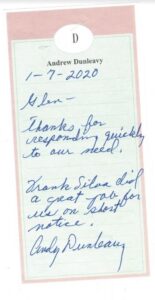 D
Andrew Dunleavy
1-7-2020
Glen-
Thanks for
responding quickly
to our need.
Frank Silva did
a great job for
us on short
notice.
Andy Dunleavy